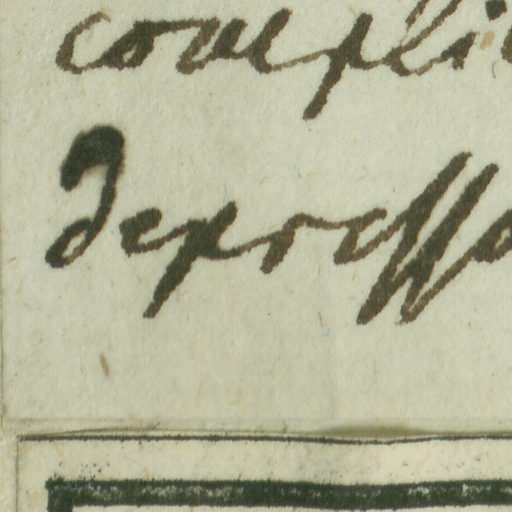 compli
depresso